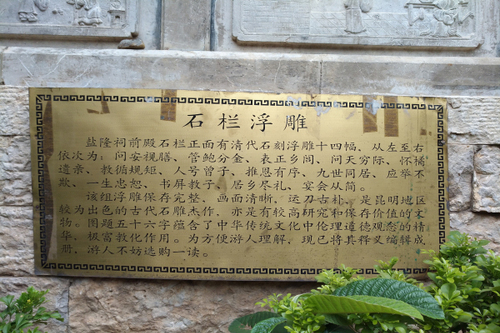 石栏浮雕
盐隆祠前殿石栏正面有清代石刻浮雕十四幅，从左至右
依次为：问安视膳、管鲍分金、表正乡闾、问天穷际、怀橘
遗亲、教循规矩、人号曾子、推恩有序、九世同居、应举不
欺、一生忠恕、书屏教子、居乡尽礼、宴会从简。
该组浮雕保存完整，画面清晰，运刀古朴，是昆明地区
较为出色的古代石雕杰作，亦是有较高研究和保存价值的文
物。图题五十六字蕴含了中华传统文化中伦理道德观念的精
华，极富教化作用。为方便游人理解，现已将其释义编辑成
册，游人不妨选购一读。